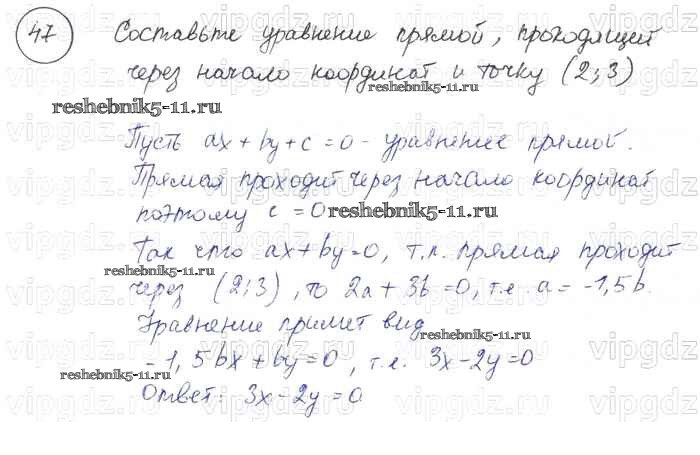 47 Составьте уравнение прямой, проходящей
через начало координат и точку (2;3)
reshebnik5-11.ru
reshebnik5-11.ru
Пусть ax + by + c = 0 - уравнение прямой.
Прямая проходит через начало координат
поэтому c = 0
reshebnik5-11.ru
Так что ax + by = 0, т.к. прямая проходит
reshebnik5-11.ru
через (2;3), то 2a + 3b = 0, т.е. a = -1,5b.
Уравнение примет вид
reshebnik5-11.ru
-1,5bx + by = 0, т.е. 3x - 2y = 0
reshebnik5-11.ru
Ответ: 3x - 2y = 0